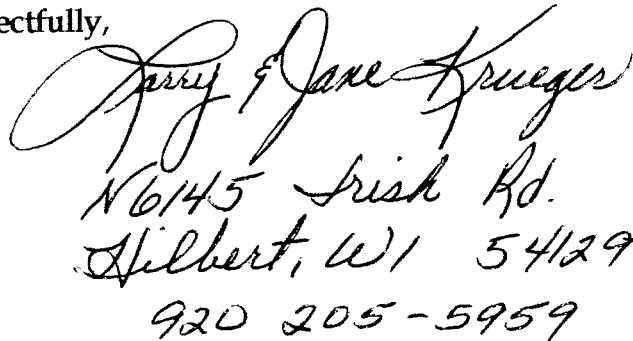 ectfully,
Larry & Jane Krueger
N6145 Irish Rd.
Hilbert, WI 54129
920 205-5959